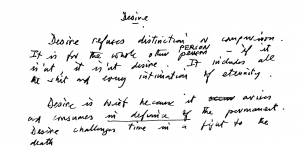 Desire
Desire refuses distinction or comparison.
It is for the whole other PERSON person – if it
isn't it isn't desire. It includes all
the shit and every intimation of eternity.
Desire is brief because it arises
and consumes in defiance of the permanent.
Desire challenges time in a fight to the
death